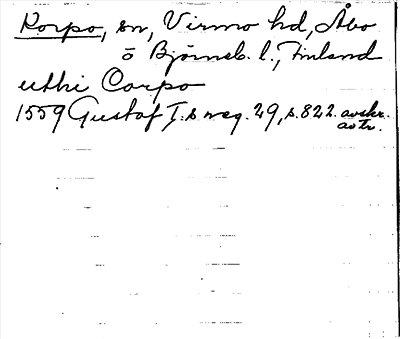 Korpo, sn, Virmo hd, Åbo
o Björneb. l., Finland
uthi Corpo
1559 Gustaf I:s reg. 29, s. 822. avskr.
avtr.